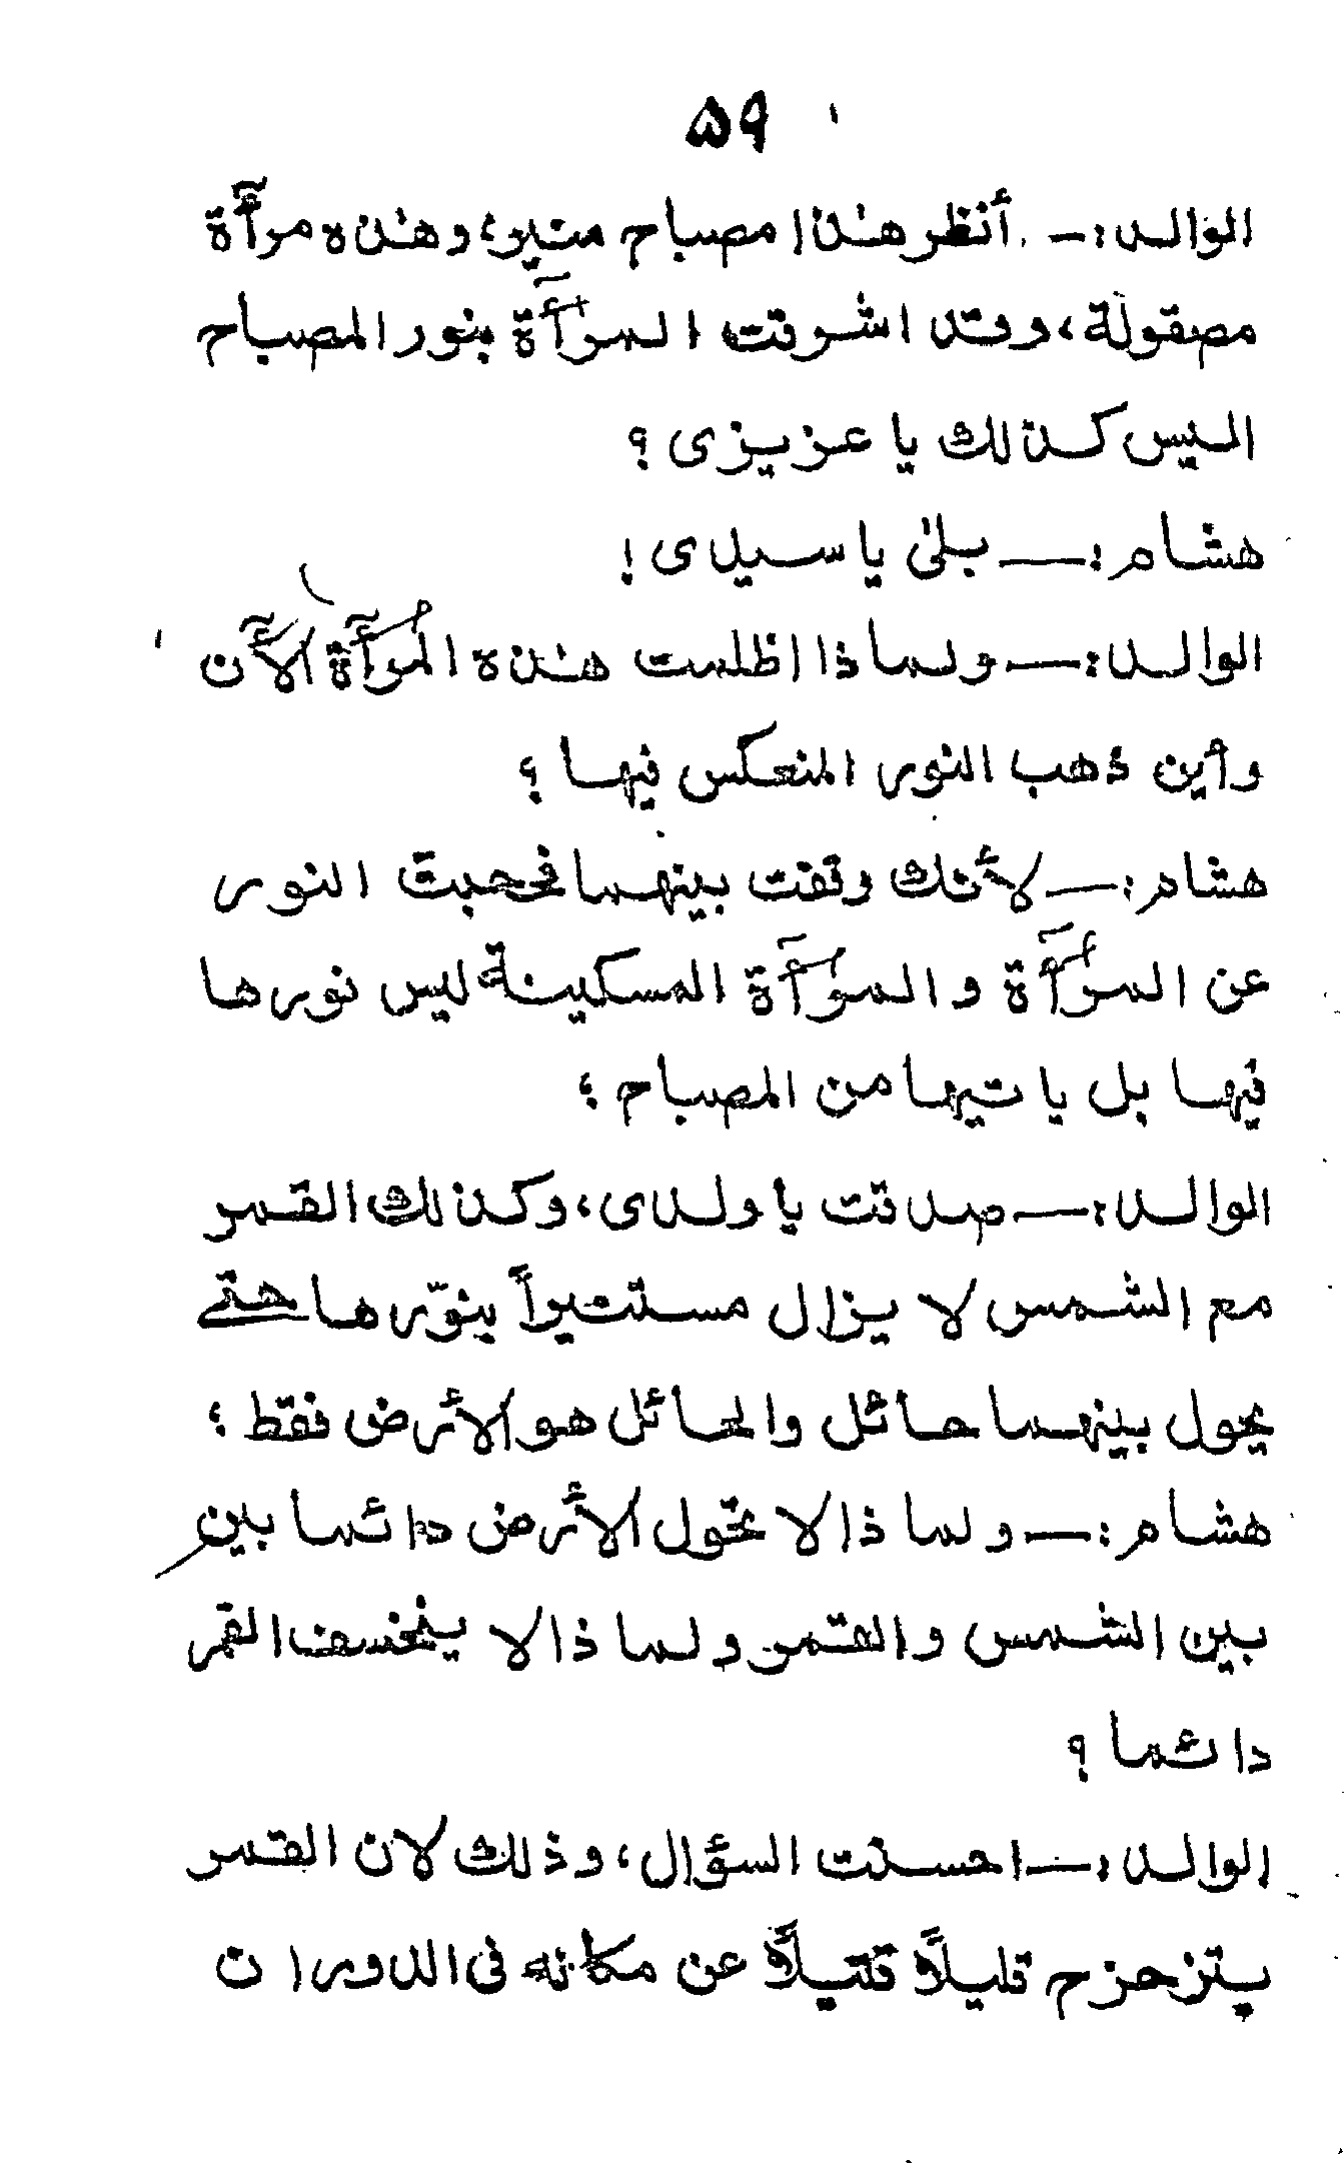 ۵۹
الوالد :— أنظر هٰذا مصباح منير، وهٰذه مرآة
مصقولة، وقد اشرقت المرآة بنور المصباح
اليس كذلك يا عزيزى ؟
هشام :— بلىٰ يا سيدى !
الوالد :— ولماذا اظلمت هٰذه المرآة الآن
وأين ذهب النور المنعكس فيها ؟
هشام :— لأنك وقفت بينهما فحجبت النور
عن المرآة و المرآة المسكينة ليس نورها
فيها بل ياتيها من المصباح ؛
الوالد :— صدقت يا ولدى، وكذلك القمر
مع الشمس لا يزال مستنيراً بنورها حتى
يحول بينهما حائل والحائل هو الأرض فقط ؛
هشام :— ولماذا لا تحول الأرض دائما بين
بين الشمس والقمر ولماذا لا ينخسف القمر
دائما ؟
الوالد :— احسنت السؤال، وذلك لان القمر
يتزحزح قليلاً قليلاً عن مكانه فى الدوران